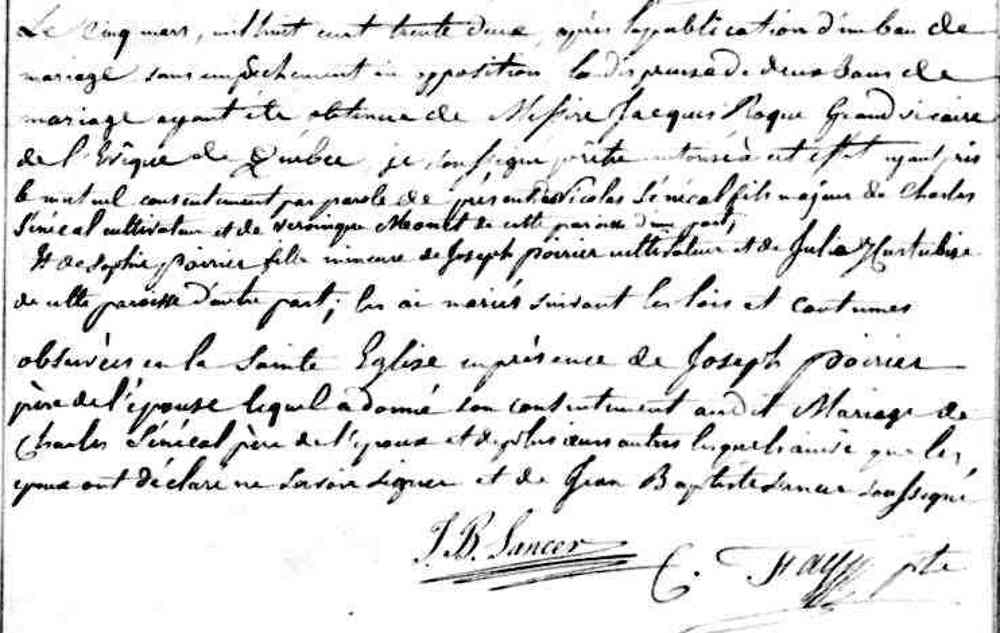 Le cinq mars, mil huit cent trente deux, après la publication d'un ban de
mariage sans empêchement ni opposition la dispense de deux bans de
mariage ayant été obtenue de Messire Jacques Roque Grand vicaire
de l'Evêque de Québec, je soussigné prêtre autorisé à cet effet ayant pris
le mutuel consentement par parole de présent de Nicolas Sénécal fils majeur de Charles
Sénécal cultivateur et de veronique de cette paroisse d'une part,
Et de Sophie Poirier fille mineure de Joseph Poirier cultivateur et de Julie Hurtubise
de cette paroisse d'autre part; les ai mariés suivant les lois et coutumes
observées en la Sainte Eglise en présence de Joseph Poirier
père de l'épouse lequel a donné son consentement audit Mariage de
Charles Sénécal père de l'époux et de plusieurs autres lesquels ainsi que les
époux ont déclaré ne savoir signer et de Jean Baptiste Sancer soussigné
J. B. Sancer
C. Fay ptr